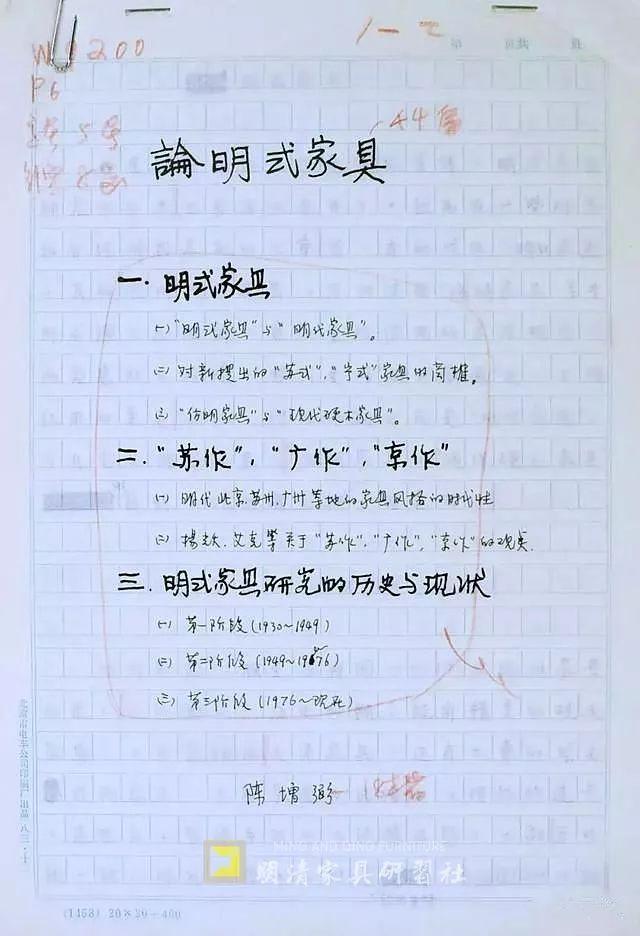 W9200
P6
44
論明式家具
一.明式家具
(一)"明式家具"与"明代家具"。
(二)对新提出的"苏式"、"宁式"家具的商榷。
(三)"仿明家具"与"现代硬木家具"。
二."苏作"、"广作"、"京作"
(一)明代北京、苏州、广州等地的家具风格的时代性
(二)杨耀、艾克等关于"苏作"、"广作"、"京作"的观点.
三.明式家具研究的历史与现状
(一)第一阶段(1930~1949)
(二)第二阶段(1949~1976)
(三)第三阶段(1976~现在)
陈增弼
MING AND QING FURNITURE
明清家具研習社
北京市电车公司印刷厂出品 八三·十
(1458) 20×20=400